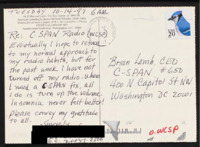 TUESDAY 10-14-97 6AM
Re: C-SPAN Radio (WCSP)
Eventually I hope to return
to my normal approach to
my radio habit, but for
the past week I have not
turned off my radio. When
I need a C-SPAN fix, all
I do is turn up the volume.
Insomnia never felt better!
Please convey my gratitude
to all.
Brian Lamb CEO
C-SPAN #650
400 N Capitol St NW
Washington DC 20001
USA
20
WCSP